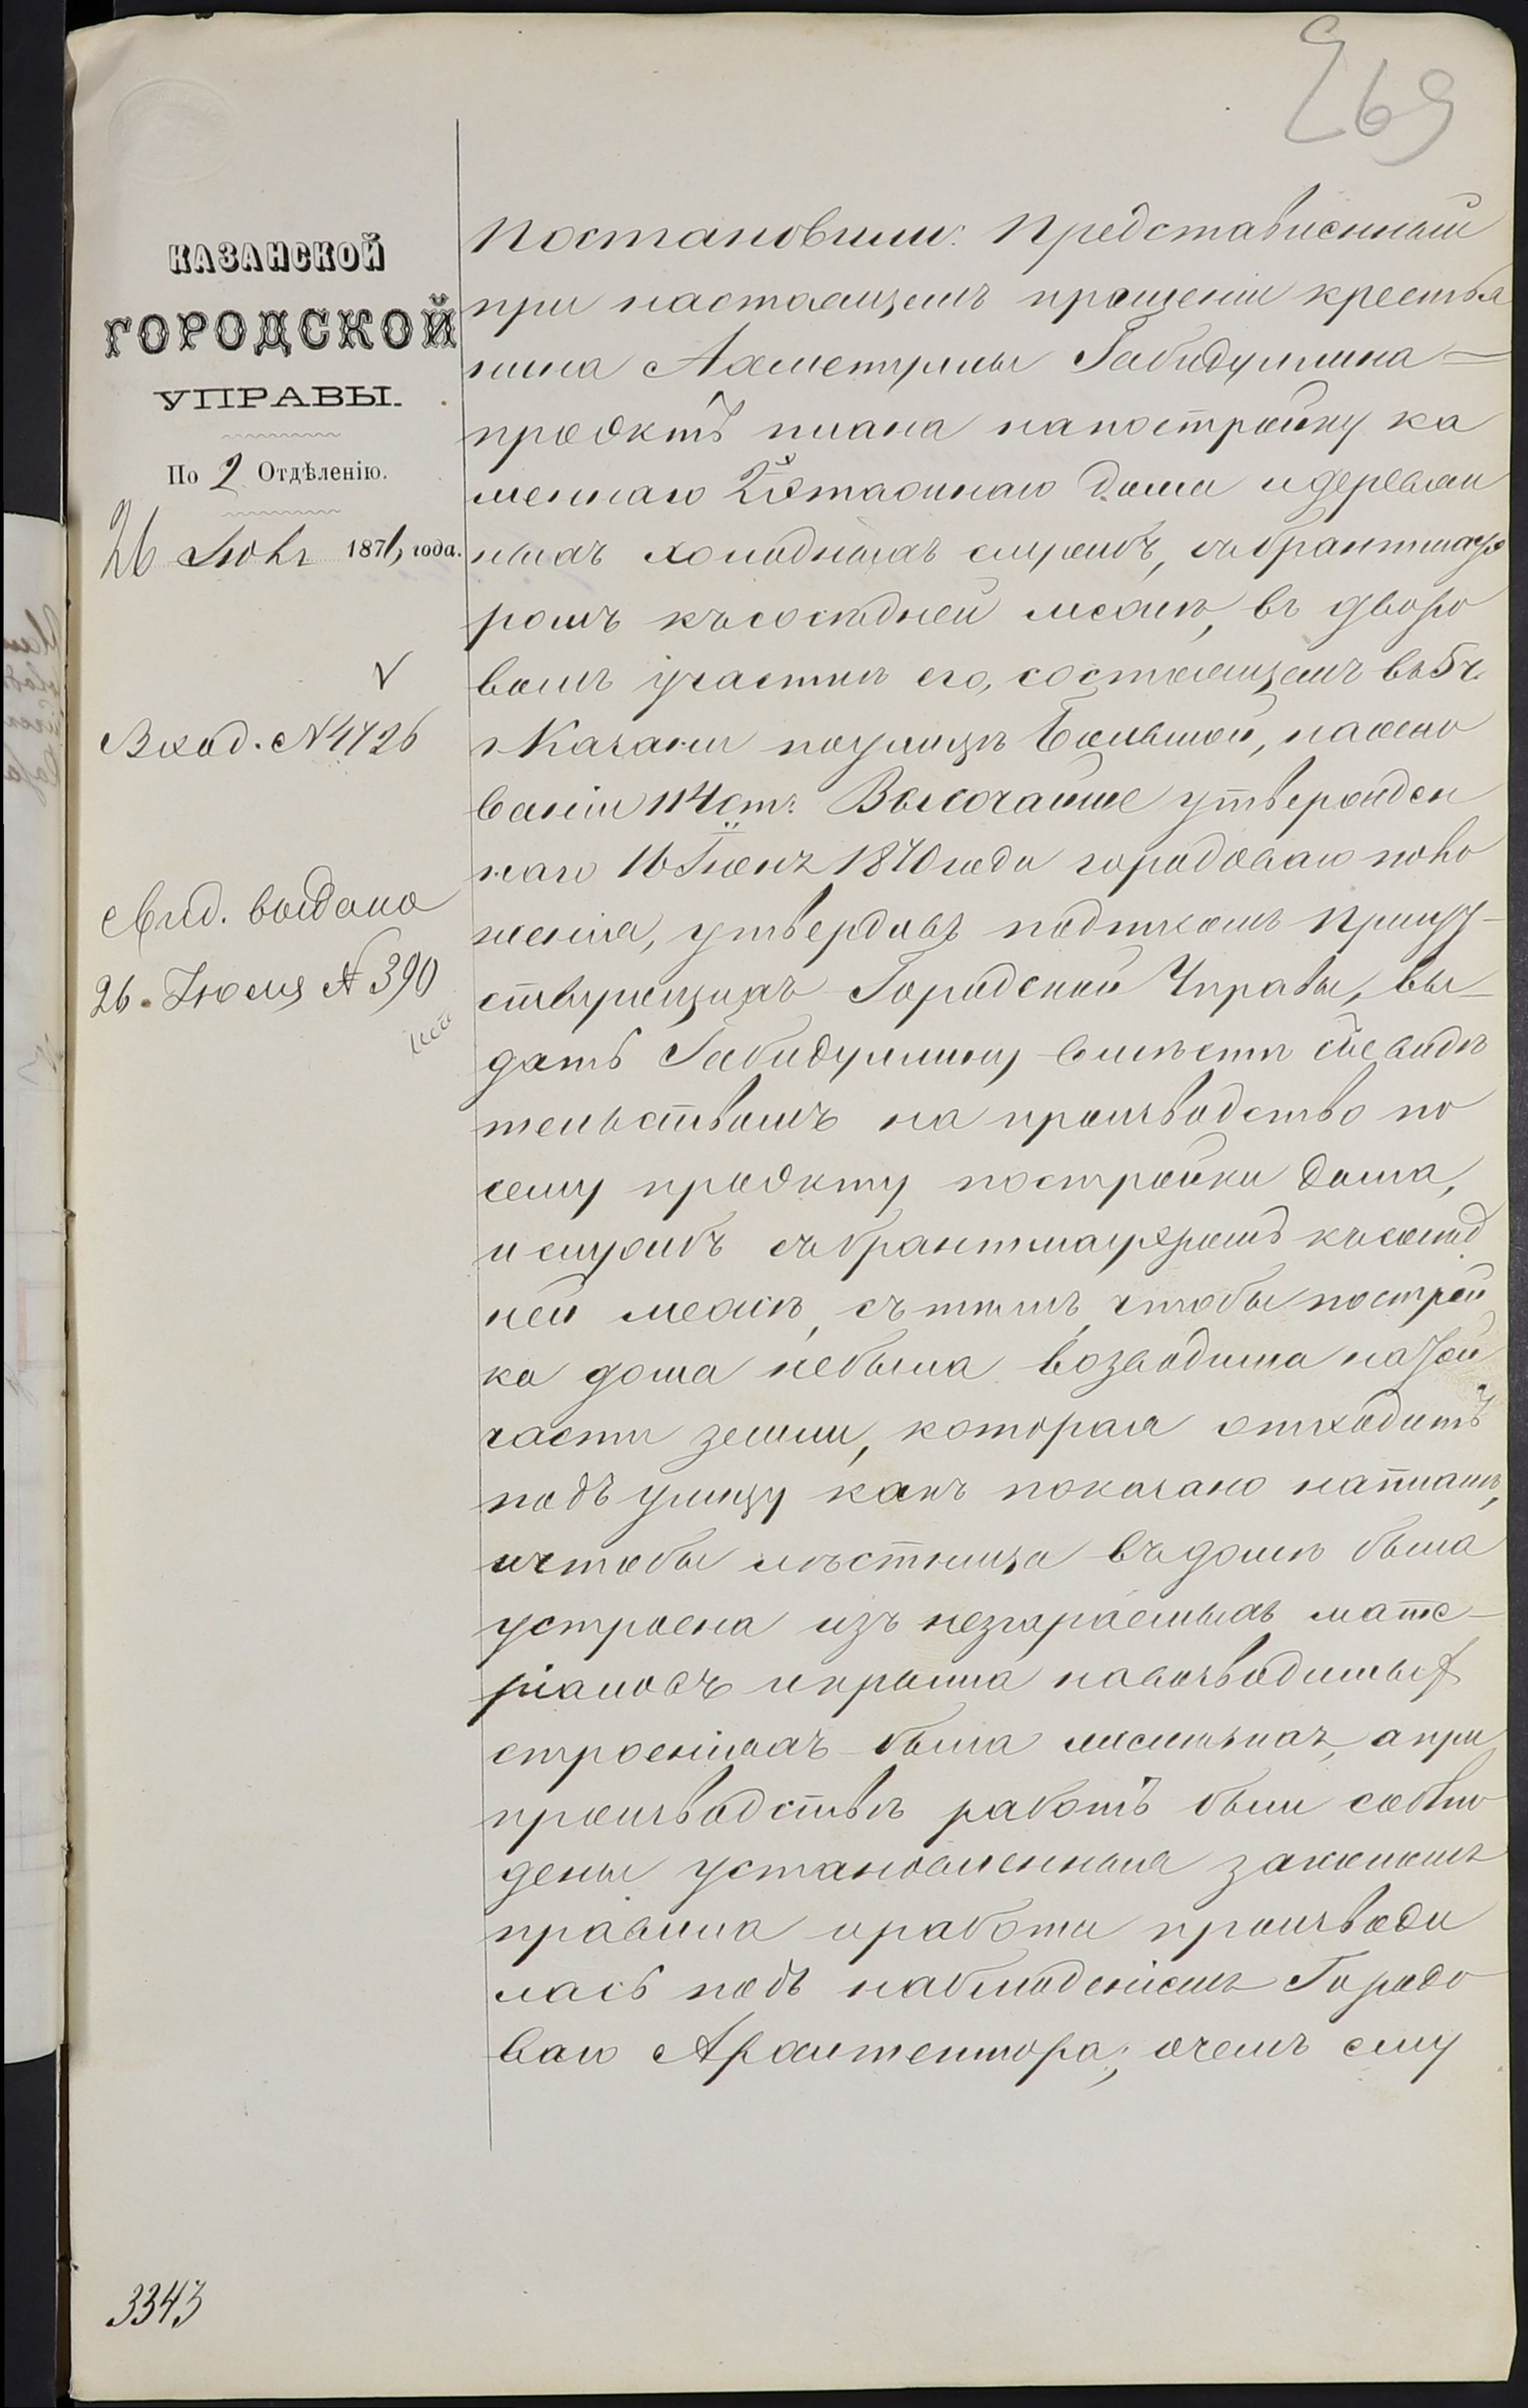 269
КАЗАНСКОЙ
ГОРОДСКОЙ
УПРАВЫ.
По 2 Отдѣленію.
26 Июля 1876 года.
Вход. № 4726
Свид. выдано
26. Июля № 390
Постановили: Представленный
при настоящемъ прошеніи крестья
нина Ахметтримы Габидуллина
проэктъ плана напостройку ка
меннаго 2хэтажнаго дома и деревян
ныхъ холодныхъ службъ, съ брантмауэ
ромъ къ сосѣдней межѣ, въ дворо
вомъ участкѣ его, состоящемъ въ 5 ч.
г. Казани поулицѣ Большой, наосно
ваніи 114 ст. Высочайше утвержден
наго 16 Іюня 1870 года городоваго поло
женія, утвердивъ подписомъ присут-
ствующихъ Городской Управы, вы-
дать Габидуллину вмѣстѣ съ свидѣ
тельствомъ на производство по
сему проэкту постройки дома,
и службъ съ брантмауэромъ къ сосѣд
ней межѣ, съ тѣмъ, чтобы построй
ка дома небыла возводима на той
части земли, которая отходитъ
подъ улицу какъ показано напланѣ,
ичтобы лѣстница въ домѣ была
устроена изъ незгараемыхъ мате-
ріаловъ икрыша навозводимыхъ
строеніяхъ была желѣзная, апри
производствѣ работъ были соблю
дены установленныя закономъ
правила иработы производи
лась подъ наблюденіемъ Городо
ваго Архитектора; очемъ ему
3343